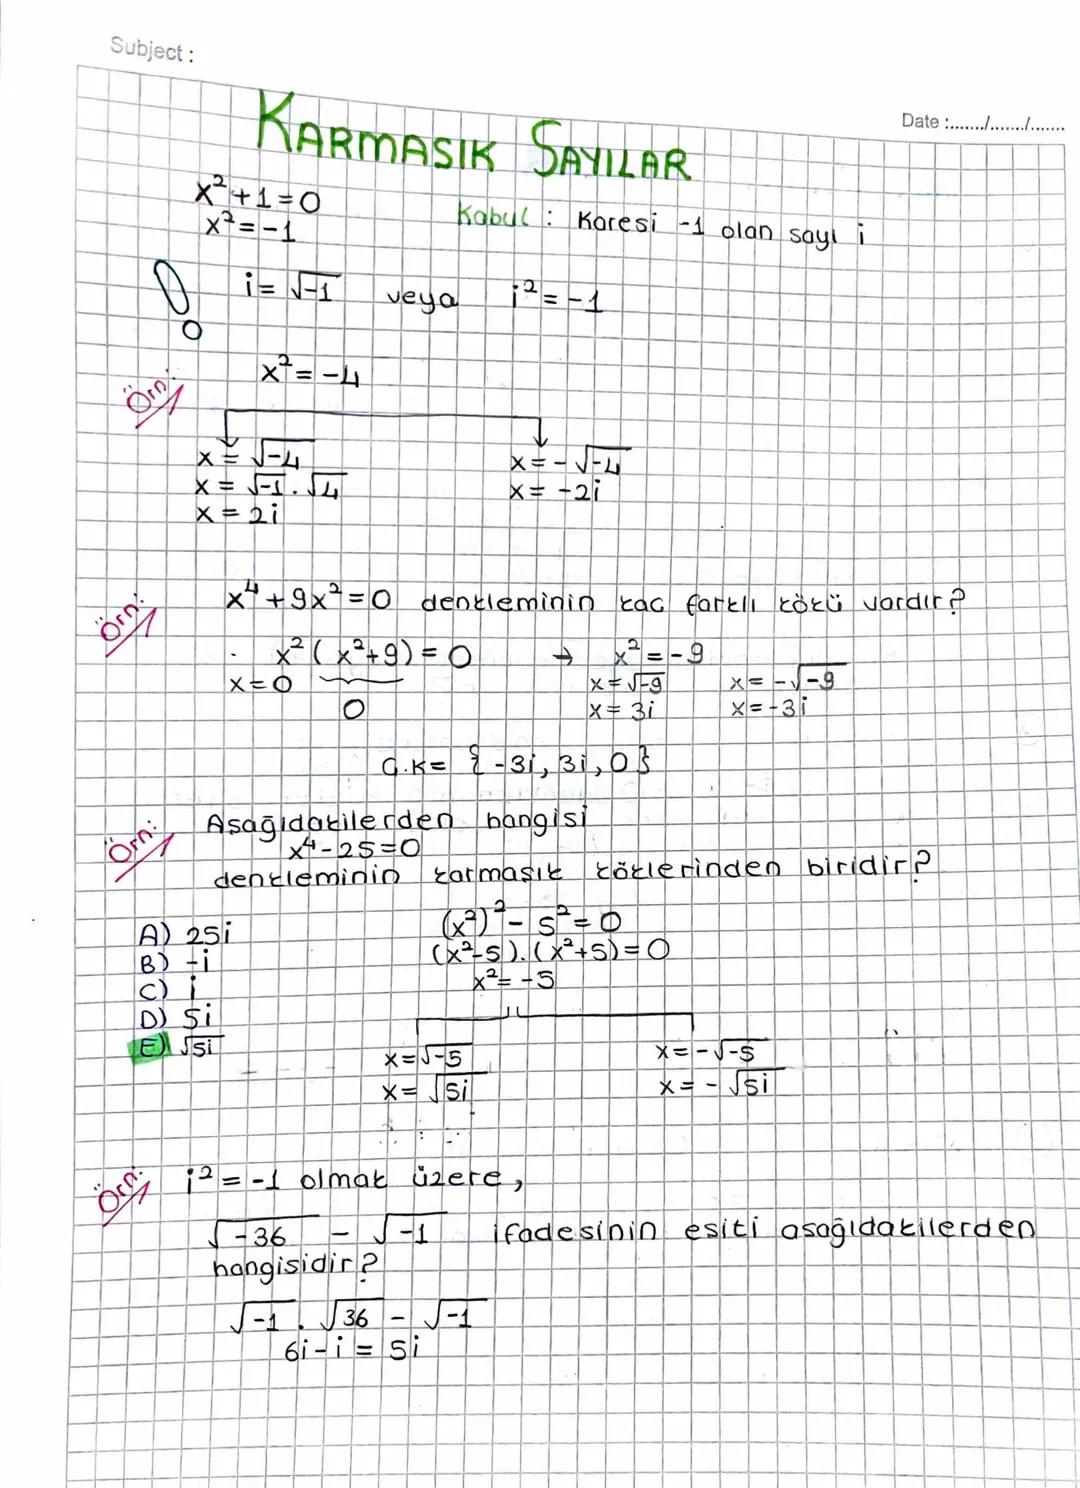 Subject :
Date :......./......./.......
KARMASIK SAYILAR
x²+1=0
x²=-1
Kabul : Karesi -1 olan sayı i
i= √-1 veya i²=-1
Örn:
x²=-4
x= √-4
x= √-1.√4
x= 2i
x= -√-4
x= -2i
Örn:
x⁴+9x²=0 denkleminin kac farklı kökü vardır?
x²(x²+9)=0 → x²=-9
x=0
0
x=√-9
x=3i
x=-√-9
x=-3i
Ç.K= {-3i, 3i, 0}
Örn:
Asağıdakilerden hangisi
x⁴-25=0
denkleminin karmasık köklerinden biridir?
A) 25i
B) -i
C) i
D) 5i
E) √5i
(x²)²-5²=0
(x²-5).(x²+5)=0
x²=-5
x=√-5
x= √5i
x=-√-5
x= -√5i
Örn:
i²=-1 olmak üzere,
√-36 - √-1 ifadesinin esiti asağıdakilerden
hangisidir?
√-1.√36 - √-1
6i-i= 5i